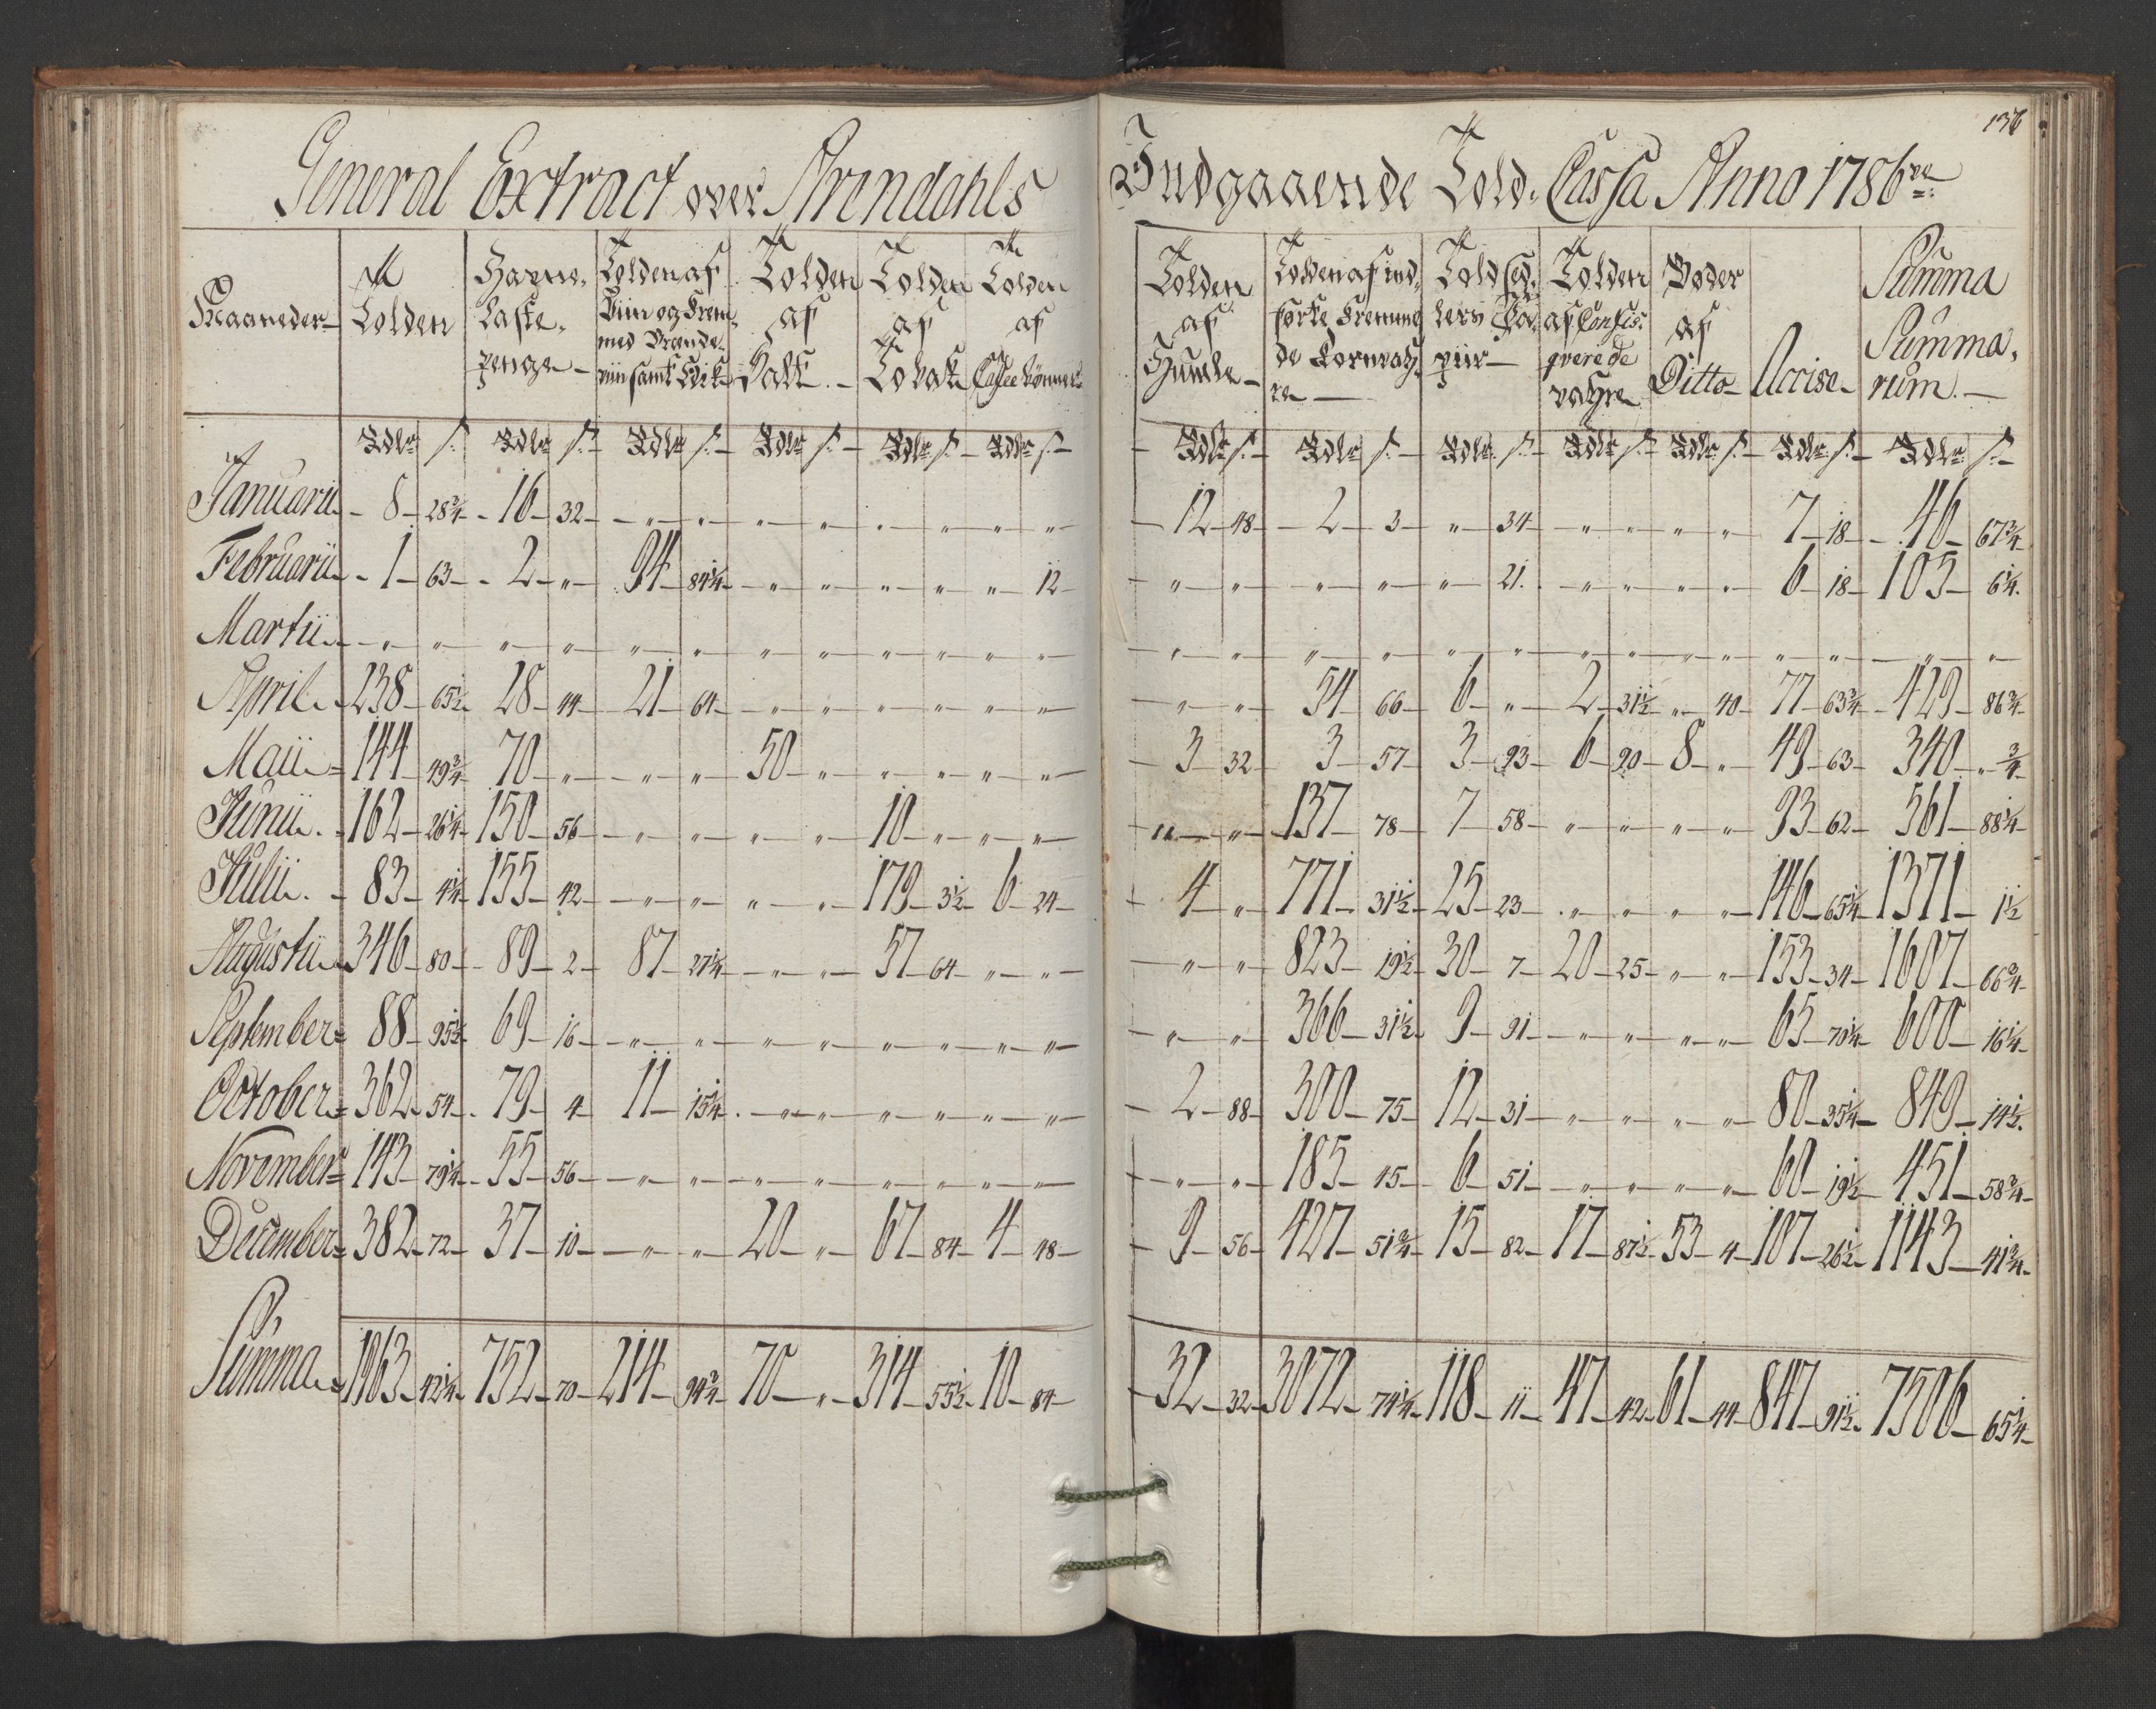 136
General Extract over Arendahls Indgaaende Told-Cassa Anno 1786
Maaneder Tolden Havne- Laste- penge Tolden af Viin og Frem- med Brende- viin samt Edik Tolden af Salt Tolden af Tobak Tolden af Caffee bønner Tolden af Humle Tolden af ind- førte Fremme- de Kornvah- re Told Sed- lers Pa- piir Tolden af Confis- qverede vahre Bøder af Ditto Accise Summa Summa- rum
Rdlr s. Rdlr s. Rdlr s. Rdlr s. Rdlr s. Rdlr s. Rdlr s. Rdlr s. Rdlr s. Rdlr s. Rdlr s. Rdlr s. Rdlr s.
Januarii 8 28 3/4 16 32 " " " " " " " " 12 48 2 3 " 34 " " " " 7 18 46 67 3/4
Februarii 1 63 2 " 94 84 1/4 " " " " " 12 " " " " " 21 " " " " 6 18 105 6 1/4
Martii " " " " " " " " " " " " " " " " " " " " " " " " " "
April 238 65 1/2 28 44 21 64 " " " " " " " " 54 66 6 " 2 31 1/2 " 40 77 63 3/4 429 86 3/4
Maii 144 49 3/4 70 " " " 50 " " " " " 3 32 3 57 3 93 6 90 8 " 49 63 340 " 3/4
Junii 162 26 1/4 150 56 " " " " 10 " " " " " 137 78 7 58 " " " " 93 62 561 88 1/4
Julii 83 4 1/4 155 42 " " " " 179 3 1/2 6 24 4 " 771 31 1/2 25 23 " " " " 146 65 1/4 1371 1 1/2
Augustii 346 80 89 2 87 27 1/4 " " 57 64 " " " " 823 19 1/2 30 7 20 25 " " 153 34 1607 66 3/4
September 88 95 1/2 69 16 " " " " " " " " " " 366 31 1/2 9 91 " " " " 65 70 1/4 600 16 1/4
October 362 54 79 4 11 15 1/4 " " " " " " 2 88 300 75 12 31 " " " " 80 35 1/4 849 14 1/2
November 143 79 1/4 55 56 " " " " " " " " " " 185 45 6 51 " " " " 60 19 1/2 451 58 3/4
December 382 72 37 10 " " 20 " 67 84 4 48 9 56 427 51 3/4 15 82 17 87 1/2 53 4 107 26 1/2 1143 41 3/4
Summa 1963 42 1/4 752 70 214 94 3/4 70 " 314 55 1/2 10 84 32 32 3072 74 1/4 118 11 47 42 61 44 847 91 1/2 7506 65 1/4